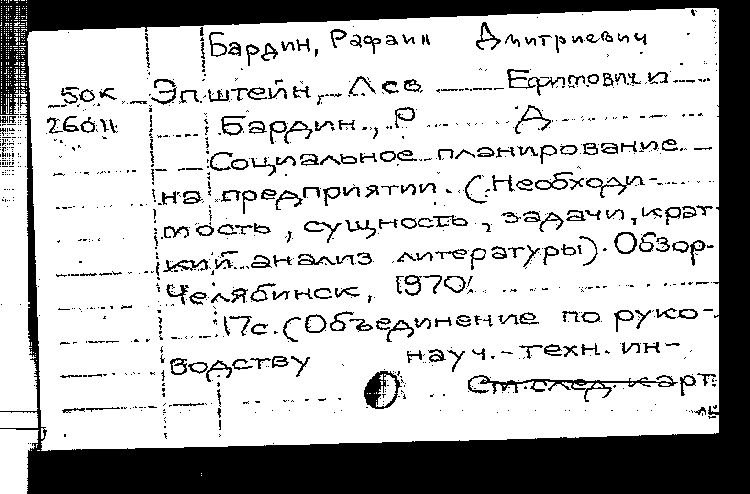 Бардин, Рафаил Дмитриевич
50к Эпштейн, Лев Ефимович и
260.11 Бардин, Р Д
Социальное планирование
на предприятии. (Необходи-
мость, сущность, задачи, крат-
кий анализ литературы). Обзор.
Челябинск, 1970.
17с. (Объединение по руко-
водству науч.-техн. ин-
См. след. карт.